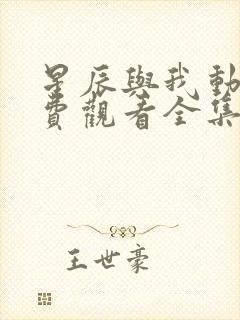 星辰與我動
費觀看全集
王世豪